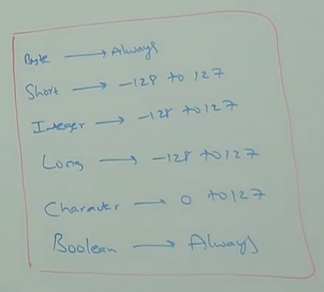 Byte → Always
Short → -128 to 127
Integer → -128 to 127
Long → -128 to 127
Character → 0 to 127
Boolean → Always